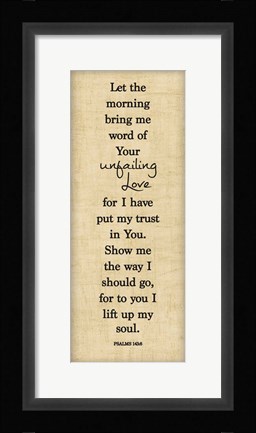 Let the
morning
bring me
word of
Your
unfailing
Love
for I have
put my trust
in You.
Show me
the way I
should go,
for to you I
lift up my
soul.
PSALMS 143:8